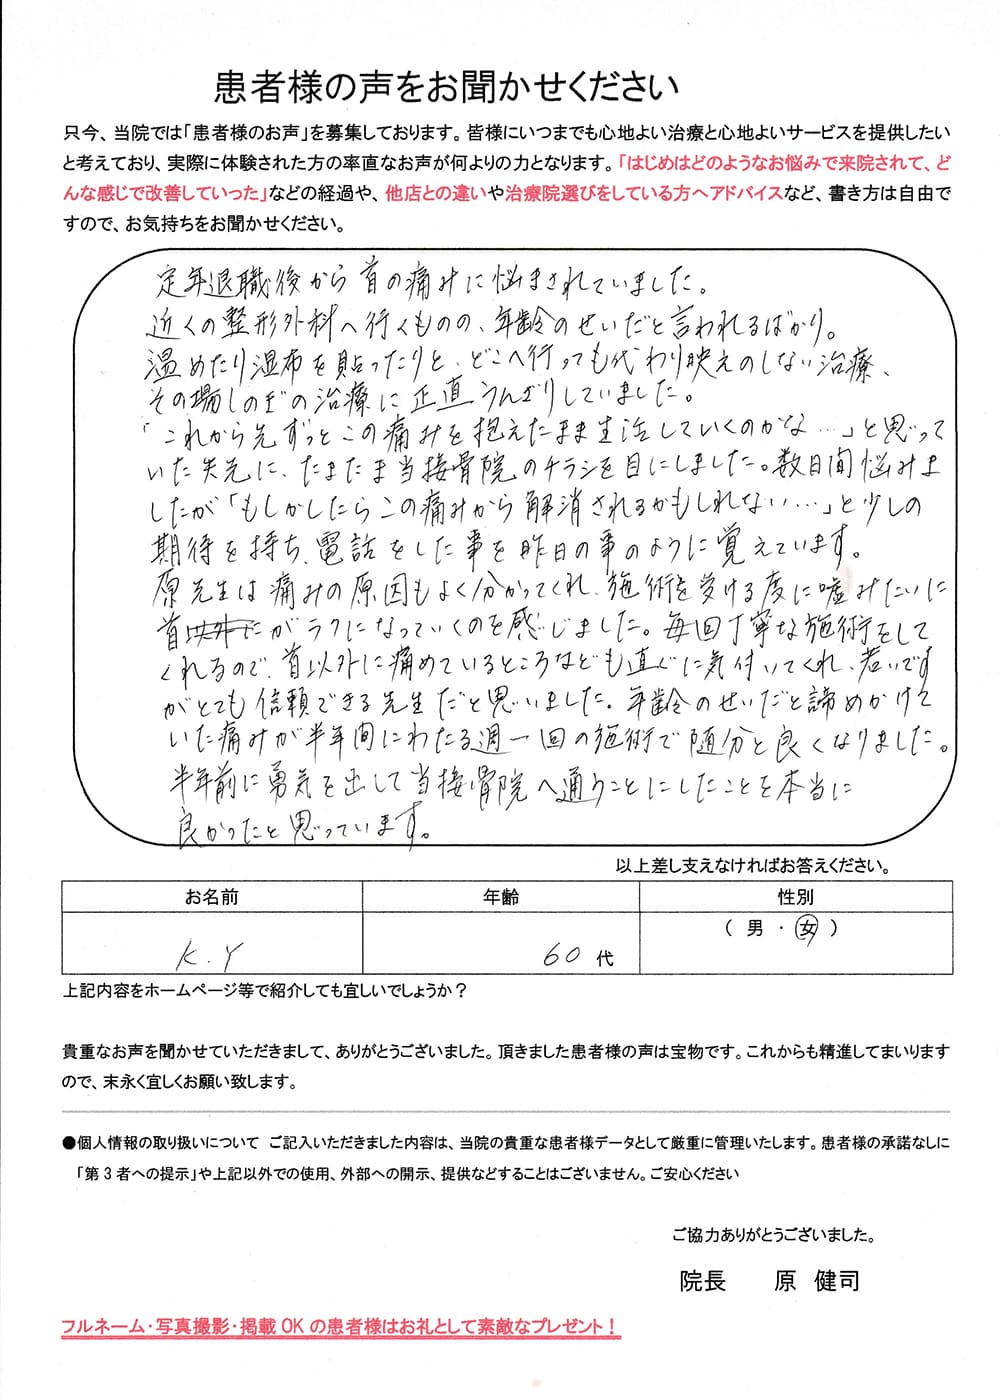 患者様の声をお聞かせください
只今、当院では「患者様のお声」を募集しております。皆様にいつまでも心地よい治療と心地よいサービスを提供したい
と考えており、実際に体験された方の率直なお声が何よりの力となります。「はじめはどのようなお悩みで来院されて、ど
んな感じで改善していった」などの経過や、他店との違いや治療院選びをしている方へアドバイスなど、書き方は自由で
すので、お気持ちをお聞かせください。
定年退職後から首の痛みに悩まされていました。
近くの整形外科へ行くものの、年齢のせいだと言われるばかり。
温めたり湿布を貼ったりと、どこへ行っても代わり映えのしない治療、
その場しのぎの治療に正直うんざりしていました。
「これから先ずっとこの痛みを抱えたまま生活していくのかな…」と思って
いた矢先に、たまたま当接骨院のチラシを目にしました。数日間悩みま
したが「もしかしたらこの痛みから解消されるかもしれない…」と少しの
期待を持ち、電話をした事を昨日の事のように覚えています。
原先生は痛みの原因もよく分かってくれ、施術を受ける度に嘘みたいに
首がラクになっていくのを感じました。毎回丁寧な施術をして
くれるので、首以外に痛めているところなども直ぐに気付いてくれ、若いです
がとても信頼できる先生だと思いました。年齢のせいだと諦めかけて
いた痛みが半年間にわたる週一回の施術で随分と良くなりました。
半年前に勇気を出して当接骨院へ通うことにしたことを本当に
良かったと思っています。
以上差し支えなければお答えください。
お名前 年齢 性別
K.Y 60代 （ 男 ・ 女 ）
上記内容をホームページ等で紹介しても宜しいでしょうか？
貴重なお声を聞かせていただきまして、ありがとうございました。頂きました患者様の声は宝物です。これからも精進してまいります
ので、末永く宜しくお願い致します。
●個人情報の取り扱いについて ご記入いただきました内容は、当院の貴重な患者様データとして厳重に管理いたします。患者様の承諾なしに
「第３者への提示」や上記以外での使用、外部への開示、提供などすることはございません。ご安心ください
ご協力ありがとうございました。
院長 原 健司
フルネーム・写真撮影・掲載OKの患者様はお礼として素敵なプレゼント！